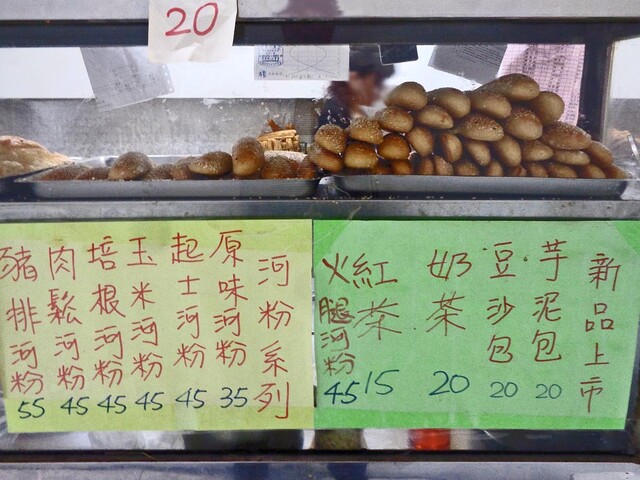 20
河粉系列
原味河粉 35
起士河粉 45
玉米河粉 45
培根河粉 45
肉鬆河粉 45
豬排河粉 55
新品上市
芋泥包 20
豆沙包 20
奶茶 20
紅茶 15
火腿河粉 45